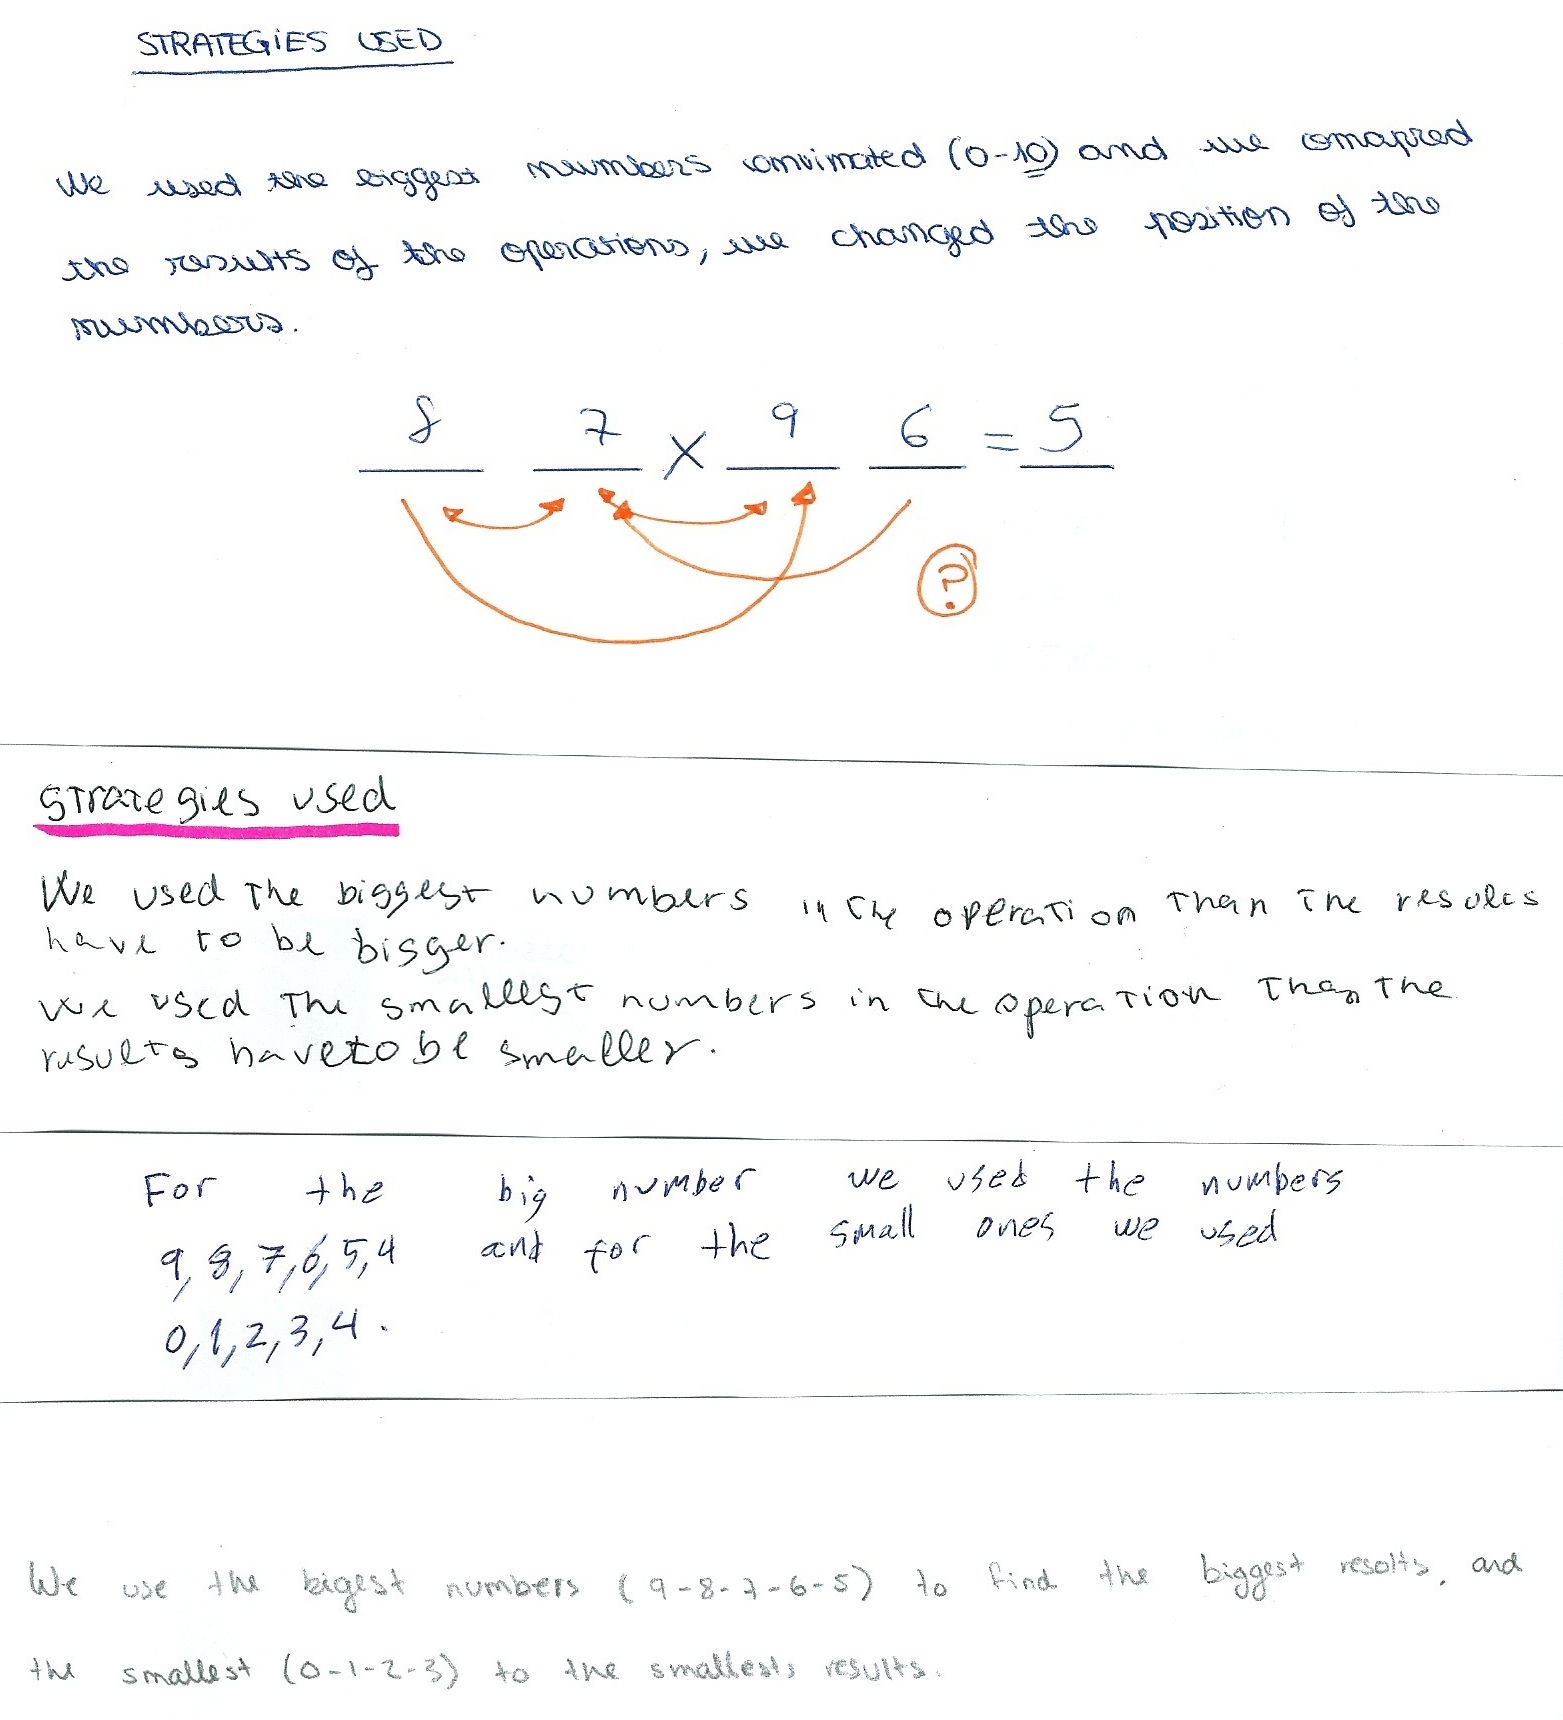 STRATEGIES USED
We used the biggest numbers convinated (0-10) and we comapred
the results of the operations, we changed the position of the
numbers.
8 7 x 9 6 = 5
?
strategies used
We used The biggest numbers in the operation Than The results
have to be bigger.
we used The smallest numbers in the operation Than The
results have to be smaller.
For the big number we used the numbers
9, 8, 7, 6, 5, 4 and for the small ones we used
0, 1, 2, 3, 4.
We use the bigest numbers (9-8-7-6-5) to find the biggest resolts, and
the smallest (0-1-2-3) to the smallests results.